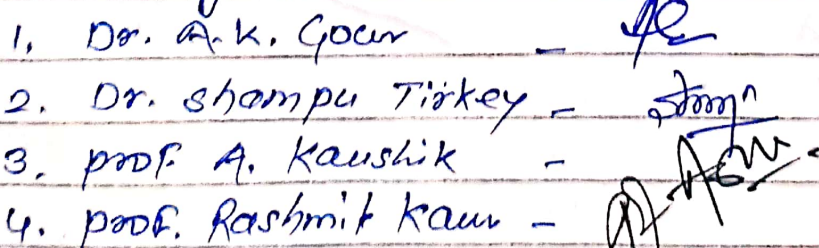 1. Dr. A.K. Gour -
2. Dr. Shampu Tirkey -
3. Prof. A. Kaushik -
4. Prof. Rashmit Kaur -